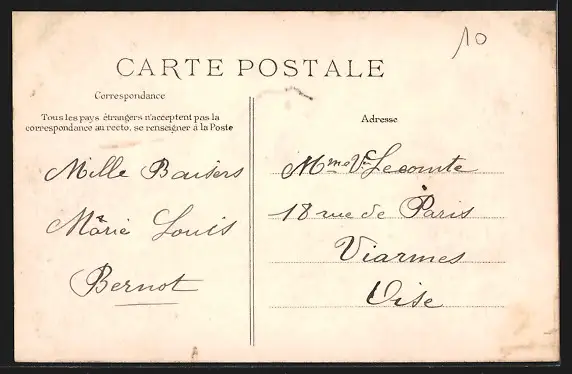 10
CARTE POSTALE
Correspondance
Tous les pays étrangers n'acceptent pas la
correspondance au recto, se renseigner à la Poste
Mille Baisers
Marie Louis
Bernot
Adresse
Mme Vve Lecomte
18 rue de Paris
Viarmes
Oise